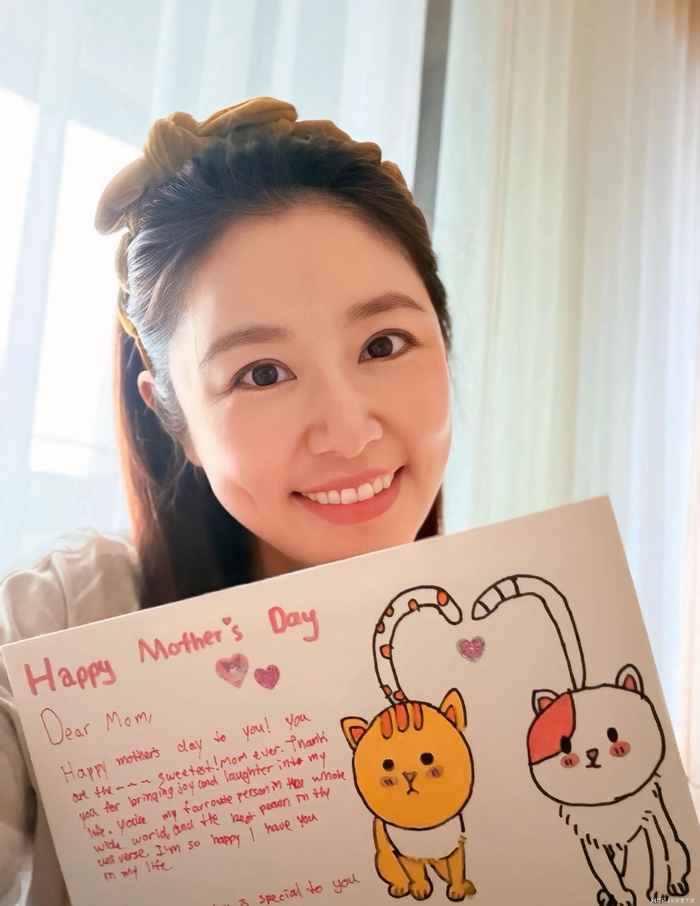 Happy Mother's Day
Dear Mom,
Happy mothers day to you! You
are the ~~~ sweetest! Mom ever. Thank
you for bringing joy and laughter into my
life. You're my favroute person in the whole
wide world, and the best person in thy
universe. I'm so happy I have you
in my life.
special to you